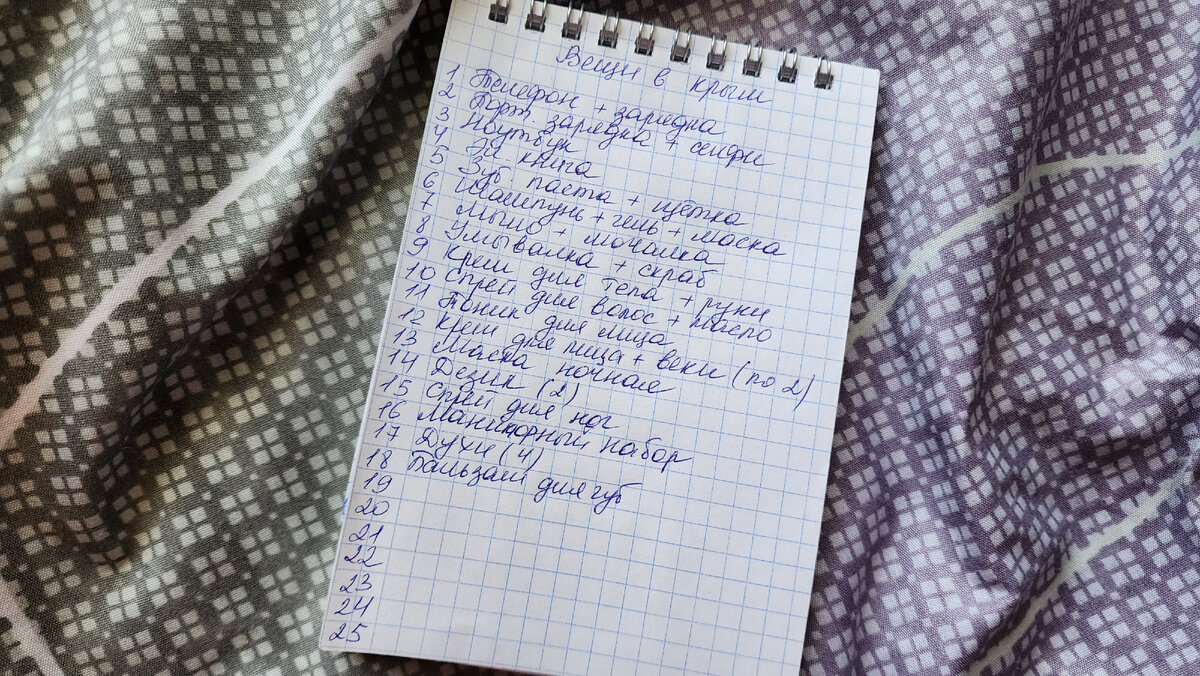 Вещи в крым
1 Телефон + зарядка
2 Порт. зарядка + селфи
3 Ноутбук
4 Эл книга
5 Зуб паста + щётка
6 Шампунь + гель + маска
7 Мыло + мочалка
8 Умывалка + скраб
9 Крем для тела + руки
10 Спрей для волос + масло
11 Тоник для лица
12 Крем для лица + веки (по 2)
13 Маска ночная
14 Дезик (2)
15 Спрей для ног
16 Маникюрный набор
17 Духи (4)
18 Бальзам для губ
19
20
21
22
23
24
25